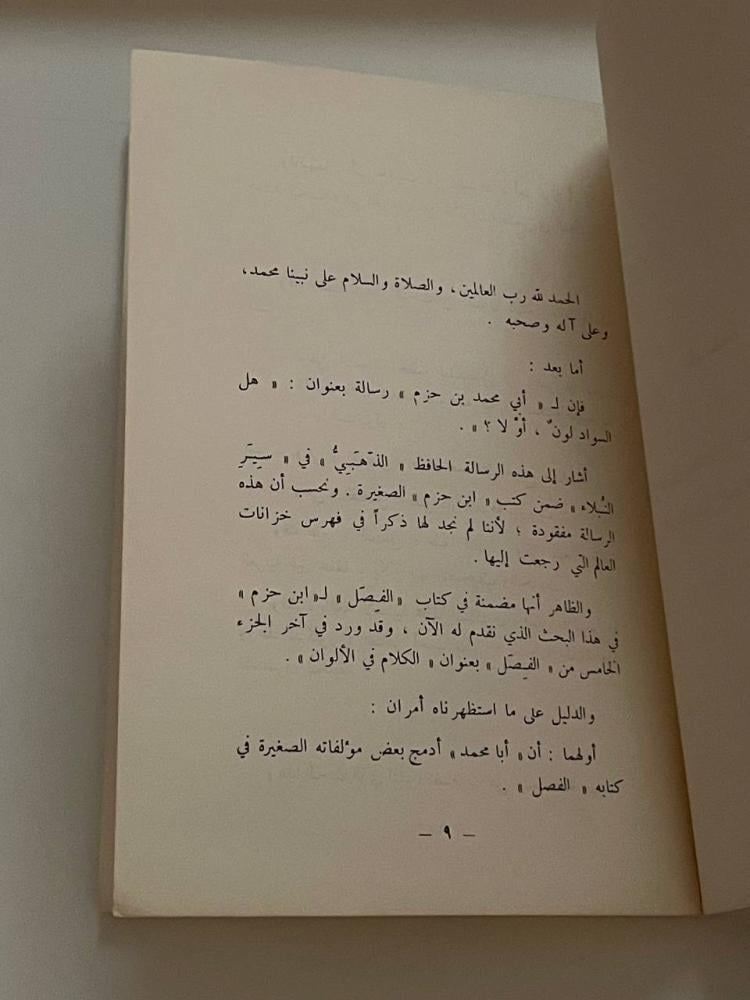 الحمد لله رب العالمين، والصلاة والسلام على نبينا محمد،
وعلى آله وصحبه .
أما بعد :
فإن لـ « أبي محمد بن حزم » رسالة بعنوان : « هل
السواد لونٌ ، أوْ لا ؟ » .
أشار إلى هذه الرسالة الحافظ « الذّهَبَيُّ » في « سِيَرِ
النُبلاء » ضمن كتب « ابن حزم » الصغيرة . ونحسب أن هذه
الرسالة مفقودة ؛ لأننا لم نجد لها ذكراً في فهرس خزانات
العالم التي رجعت إليها .
والظاهر أنها مضمنة في كتاب « الفِصَل » لـ« ابن حزم »
في هذا البحث الذي نقدم له الآن ، وقد ورد في آخر الجزء
الخامس من « الفِصَل » بعنوان « الكلام في الألوان » .
والدليل على ما استظهرناه أمران :
أولهما : أن « أبا محمد » أدمج بعض مؤلفاته الصغيرة في
كتابه « الفصل » .
— ٩ —